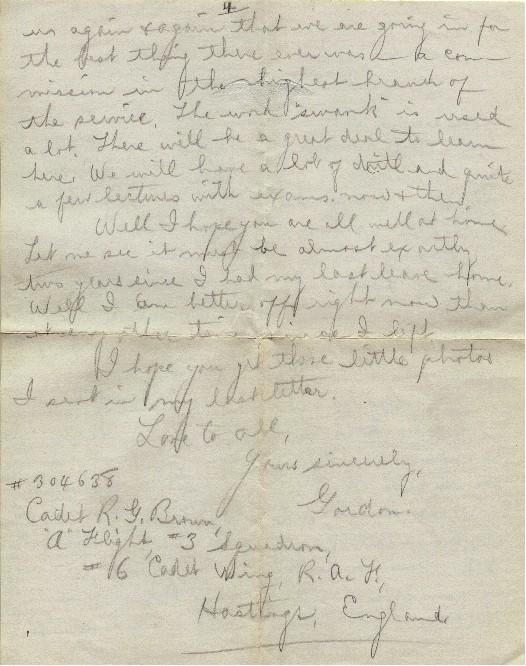 4
us again & again that we are going in for
the best thing there ever was – a com-
mission in the highest branch of
the service. The word "swank" is used
a lot. There will be a great deal to learn
here. We will have a lot of drill and quite
a few lectures with exams. now & then.
Well I hope you are all well at home.
Let me see it must be almost exactly
two years since I had my last leave home.
Well I am better off right now than
I left
I hope you get those little photos
I sent in my last letter.
Love to all,
Yours sincerely,
Gordon.
#304638
Cadet R. G. Brown,
"A" Flight #3 Squadron,
#6 Cadet Wing, R. A. F,
Hastings, England